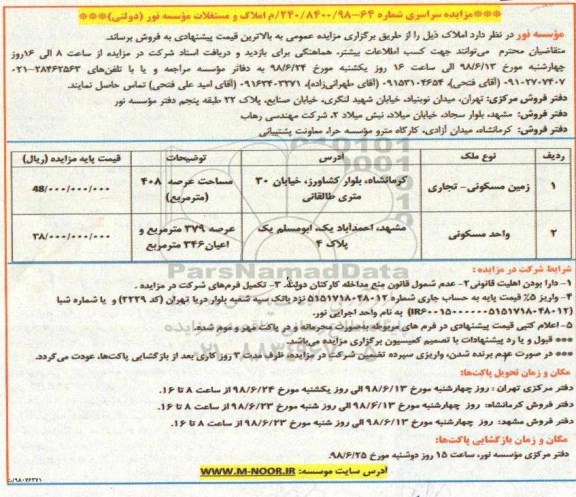 ***مزایده سراسری شماره ۶۴-۲۴۰/۸۴۰۰/۹۸/م املاک و مستغلات مؤسسه نور (دولتی)***
مؤسسه نور در نظر دارد املاک ذیل را از طریق برگزاری مزایده عمومی به بالاترین قیمت پیشنهادی به فروش برساند.
متقاضیان محترم می‌توانند جهت کسب اطلاعات بیشتر، هماهنگی برای بازدید و دریافت اسناد شرکت در مزایده از ساعت ۸ الی ۱۶روز
چهارشنبه مورخ ۹۸/۶/۱۳ الی ساعت ۱۶ روز یکشنبه مورخ ۹۸/۶/۲۴ به دفاتر مؤسسه مراجعه و یا با تلفن‌های ۲۸۴۶۲۵۶۳-۰۲۱
۰۹۱۰۲۷۰۷۴۰۷ (آقای فتحی)، ۰۹۱۵۳۱۰۴۶۵۴ (آقای طهرانی‌زاده)، ۰۹۱۶۳۴۰۳۳۷۱ (آقای امید علی فتحی) تماس حاصل نمایند.
دفتر فروش مرکزی: تهران، میدان نوبنیاد، خیابان شهید لنگری، خیابان صنایع، پلاک ۲۲ طبقه پنجم دفتر مؤسسه نور
دفتر فروش: مشهد، بلوار سجاد، خیابان میلاد، نبش میلاد ۲، شرکت مهندسی رهاب
دفتر فروش: کرمانشاه، میدان آزادی، کارگاه مترو مؤسسه حرا، معاونت پشتیبانی
ردیف نوع ملک آدرس توضیحات قیمت پایه مزایده (ریال)
۱ زمین مسکونی- تجاری کرمانشاه، بلوار کشاورز، خیابان ۳۰ متری طالقانی مساحت عرصه ۴۰۸ (مترمربع) 48/۰۰۰/۰۰۰/۰۰۰
۲ واحد مسکونی مشهد، احمدآباد یک، ابومسلم یک پلاک ۴ عرصه ۳۷۹ مترمربع و اعیان۳۴۶ مترمربع ۳۸/۰۰۰/۰۰۰/۰۰۰
ParsNamadData
شرایط شرکت در مزایده :
۱- دارا بودن اهلیت قانونی ۲- عدم شمول قانون منع مداخله کارکنان دولت. ۳- تکمیل فرم‌های شرکت در مزایده .
۴- واریز ۵٪ قیمت پایه به حساب جاری شماره ۵۱۵۱۷۱۸۰۴۸۰۱۲ نزد بانک سپه شعبه بلوار دریا تهران (کد ۲۲۲۹) و یا شماره شبا
(IR۶۰۰۱۵۰۰۰۰۰۰۰۵۱۵۱۷۱۸۰۴۸۰۱۲) به نام واحد اجرایی نور.
۵- اعلام کتبی قیمت پیشنهادی در فرم های مربوطه بصورت محرمانه و در پاکت مهر و موم شده.
*** قبول و یا رد پیشنهادات با تصمیم کمیسیون برگزاری مزایده می‌باشد.
*** در صورت عدم برنده شدن، واریزی سپرده تضمین شرکت در مزایده ظرف مدت ۳ روز کاری بعد از بازگشایی پاکت‌ها، عودت می‌گردد.
مکان و زمان تحویل پاکت‌ها:
دفتر مرکزی تهران : روز چهارشنبه مورخ ۹۸/۶/۱۳ الی روز یکشنبه مورخ ۹۸/۶/۲۴ از ساعت ۸ تا ۱۶.
دفتر فروش کرمانشاه: روز چهارشنبه مورخ ۹۸/۶/۱۳ الی روز شنبه مورخ ۹۸/۶/۲۳ از ساعت ۸ تا ۱۶.
دفتر فروش مشهد: روز چهارشنبه مورخ ۹۸/۶/۱۳ الی روز شنبه مورخ ۹۸/۶/۲۳ از ساعت ۸ تا ۱۶.
مکان و زمان بازگشایی پاکت‌ها:
دفتر مرکزی مؤسسه نور، ساعت ۱۵ روز دوشنبه مورخ ۹۸/۶/۲۵.
آدرس سایت موسسه: WWW.M-NOOR.IR